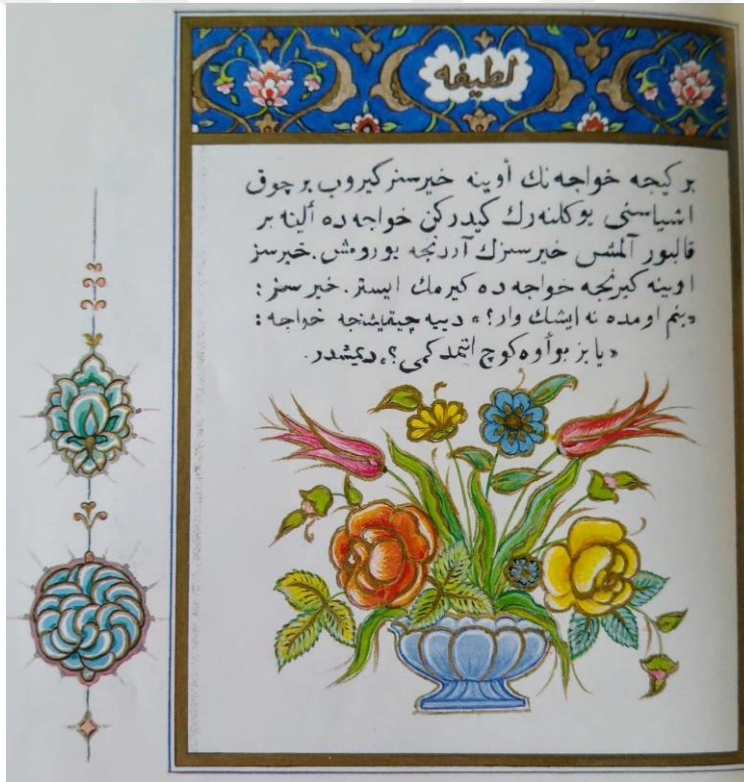 لطيفه
بر كيجه خواجه نك أوينه خيرسز كيروب بر چوق
اشياسنى يوكلنه رك كيدركن خواجه ده ألينه بر
قالبور آلمش خيرسزك آردنجه يورومش. خيرسز
اوينه كيرنجه خواجه ده كيرمك ايستر. خيرسز :
«بنم اومده نه ايشك وار؟» دييه چيقيشنجه خواجه :
«يا بز بو أوه كوچ اتمدكمى؟» ديمشدر.